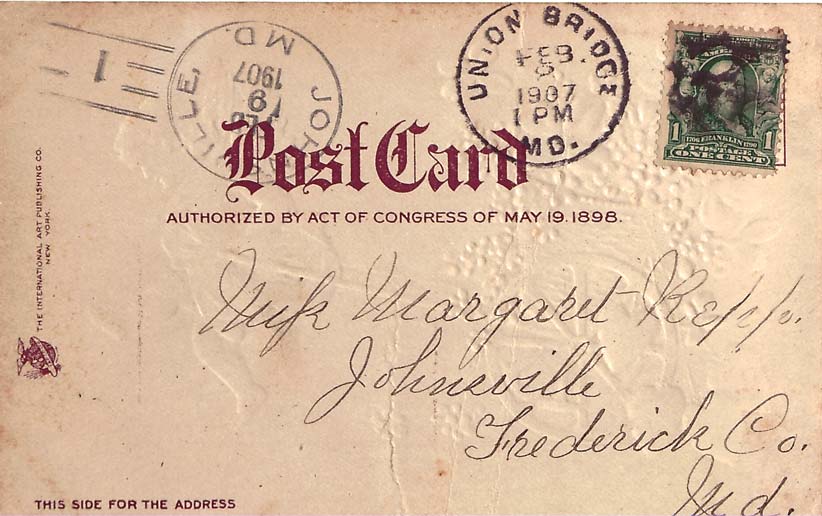 1
JOHNSVILLE,
MD.
9
1907
UNION BRIDGE
FEB.
1907
1 PM
MD.
1 1706 FRANKLIN 1790 1
POSTAGE
ONE CENT
Post Card
AUTHORIZED BY ACT OF CONGRESS OF MAY 19. 1898.
THE INTERNATIONAL ART PUBLISHING CO.
NEW YORK.
Miss Margaret Repp.
Johnsville
Frederick Co.
Md.
THIS SIDE FOR THE ADDRESS